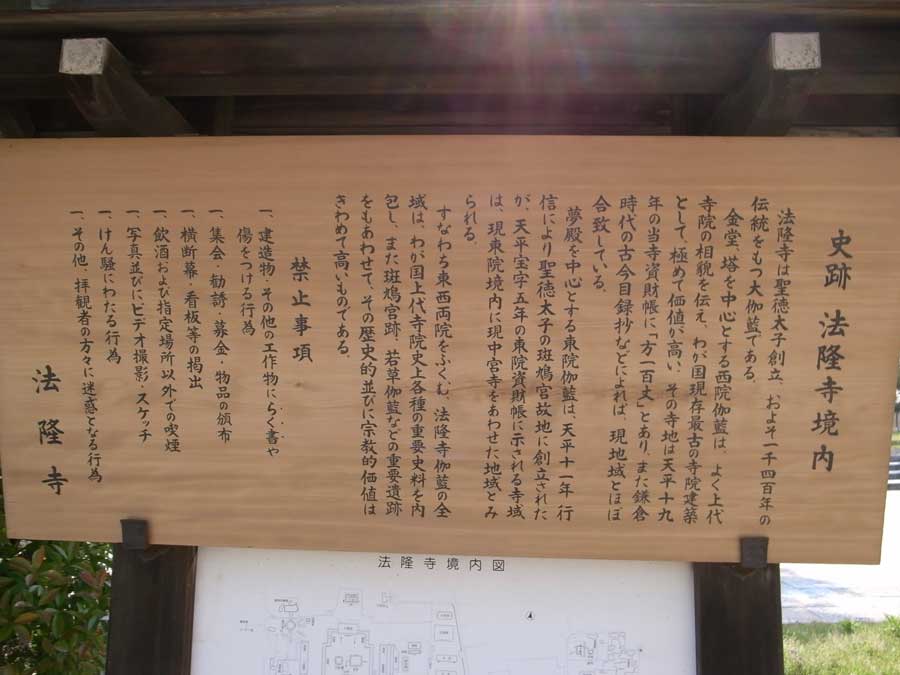 史跡 法隆寺境内
法隆寺は聖徳太子創立、およそ一千四百年の
伝統をもつ大伽藍である。
金堂、塔を中心とする西院伽藍は、よく上代
寺院の相貌を伝え、わが国現存最古の寺院建築
として、極めて価値が高い。その寺地は天平十九
年の当寺資財帳に、「方一百丈」とあり、また鎌倉
時代の古今目録抄などによれば、現地域とほぼ
合致している。
夢殿を中心とする東院伽藍は、天平十一年 行
信により聖徳太子の斑鳩宮故地に創立された
が、天平宝字五年の東院資財帳に示される寺域
は、現東院境内に現中宮寺をあわせた地域とみ
られる。
すなわち東西両院をふくむ、法隆寺伽藍の全
域は、わが国上代寺院史上各種の重要史料を内
包し、また斑鳩宮跡、若草伽藍などの重要遺跡
をもあわせて、その歴史的並びに宗教的価値は
きわめて高いものである。
禁止事項
一、建造物・その他の工作物にらく書や
傷をつける行為
一、集会・勧誘・募金・物品の頒布
一、横断幕・看板等の掲出
一、飲酒および指定場所以外での喫煙
一、写真並びにビデオ撮影・スケッチ
一、けん騒にわたる行為
一、その他、拝観者の方々に迷惑となる行為
法隆寺
法隆寺境内図